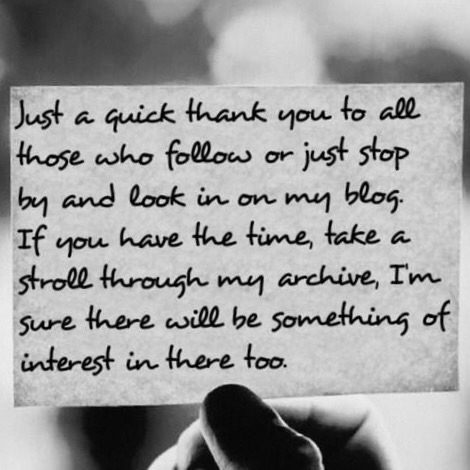 Just a quick thank you to all
those who follow or just stop
by and look in on my blog.
If you have the time, take a
stroll through my archive, I'm
sure there will be something of
interest in there too.